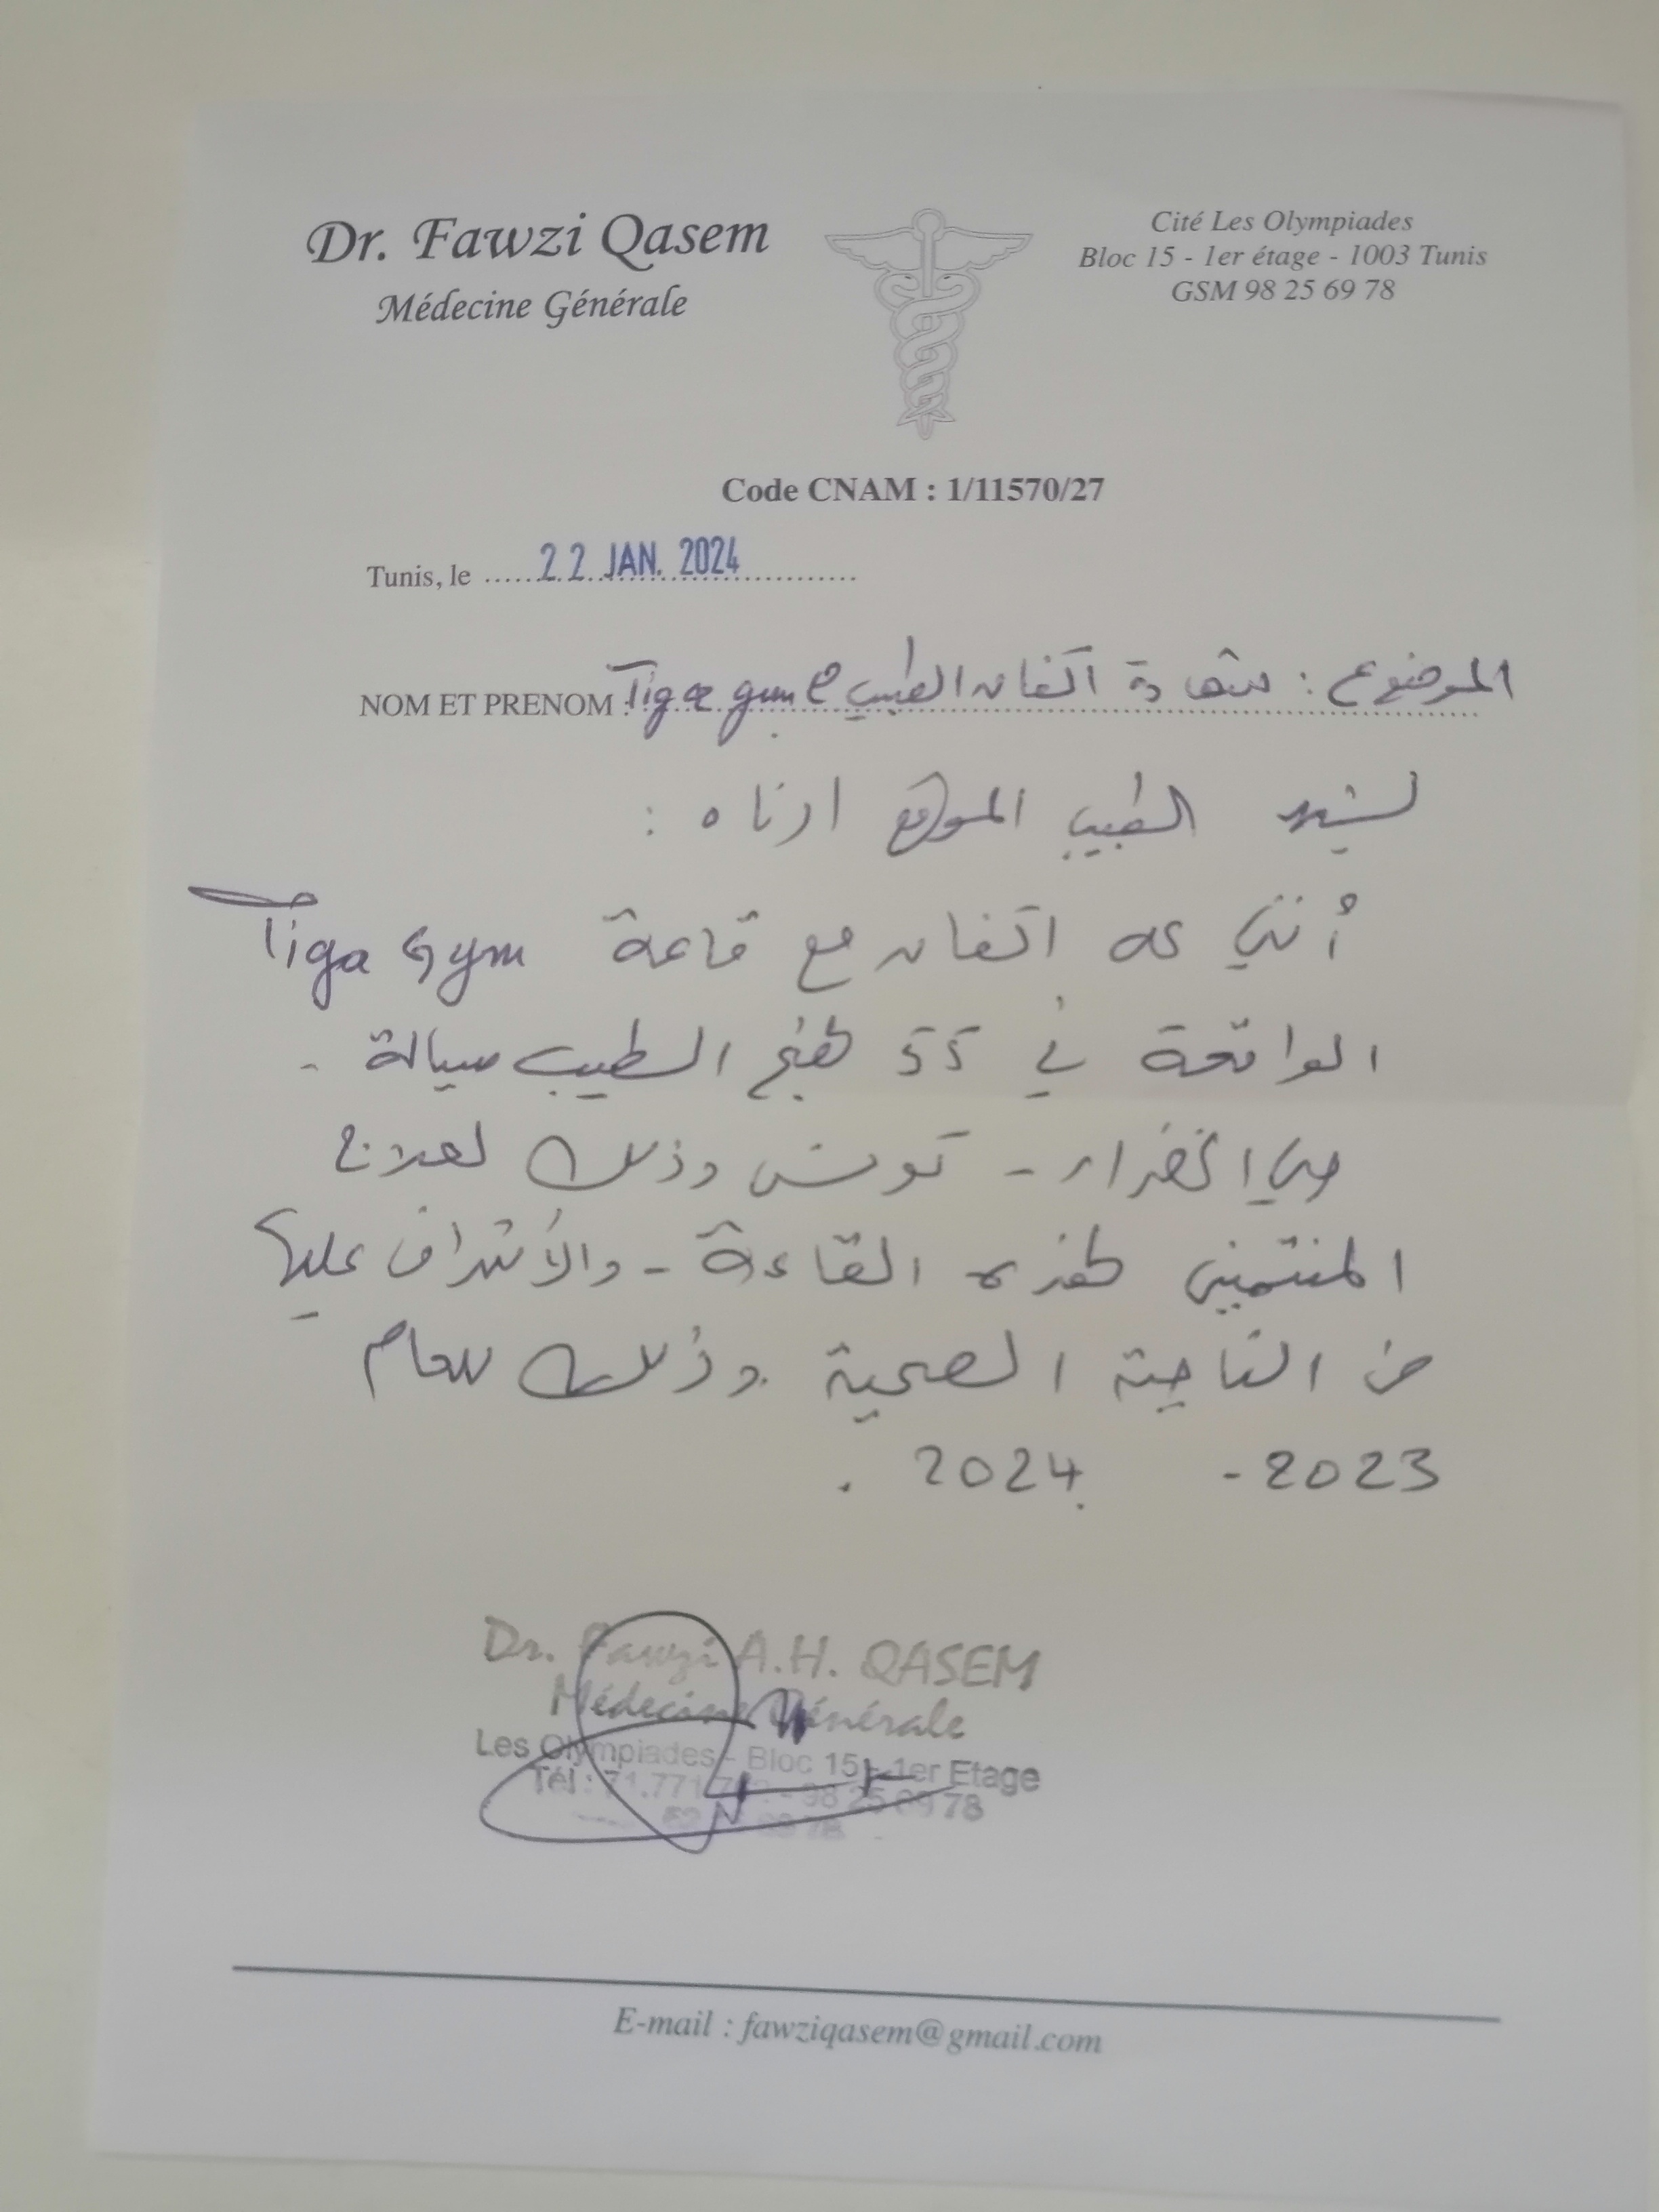 Dr. Fawzi Qasem
Médecine Générale
Cité Les Olympiades
Bloc 15 - 1er étage - 1003 Tunis
GSM 98 25 69 78
Code CNAM : 1/11570/27
Tunis, le 22 JAN. 2024
NOM ET PRENOM :
الموضوع : شهادة اتفاق الطبيب مع Tiga gym
يشهد الطبيب الموقع ادناه :
أنني على اتفاق مع قاعة Tiga Gym
الواقعة في 55 نهج الطيب سيالة -
حي الخضراء - تونس وذلك لعلاج
المنتمين لهذه القاعة - والأشراف عليها
من الناحية الصحية وذلك للعام
2023 - 2024 .
Dr. Fawzi A.H. QASEM
Médecine Générale
Les Olympiades - Bloc 15 - 1er Etage
Tél : 71.771 - 98 25 69 78
E-mail : fawziqasem@gmail.com